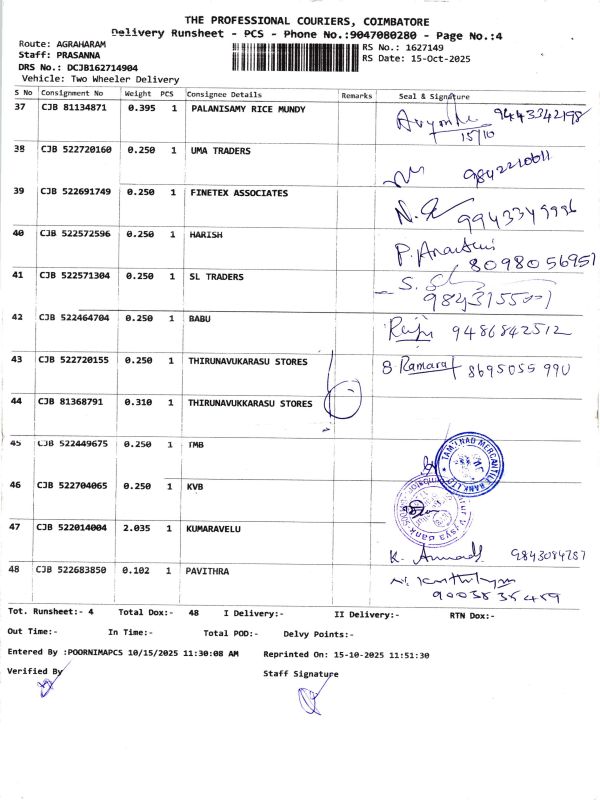 THE PROFESSIONAL COURIERS, COIMBATORE
Delivery Runsheet - PCS - Phone No.:9047080280 - Page No.:4
Route: AGRAHARAM
Staff: PRASANNA
DRS No.: DCJB162714904
Vehicle: Two Wheeler Delivery
RS No.: 1627149
RS Date: 15-Oct-2025
S No Consignment No Weight PCS Consignee Details Remarks Seal & Signature
37 CJB 81134871 0.395 1 PALANISAMY RICE MUNDY 9443342198
15/10
38 CJB 522720160 0.250 1 UMA TRADERS 9842210611
39 CJB 522691749 0.250 1 FINETEX ASSOCIATES
40 CJB 522572596 0.250 1 HARISH 8098056951
41 CJB 522571304 0.250 1 SL TRADERS
42 CJB 522464704 0.250 1 BABU 9486842512
43 CJB 522720155 0.250 1 THIRUNAVUKARASU STORES 8695055990
44 CJB 81368791 0.310 1 THIRUNAVUKKARASU STORES
45 CJB 522449675 0.250 1 TMB
TAMILNAD MERCANTILE BANK LTD
46 CJB 522704065 0.250 1 KVB
47 CJB 522014004 2.035 1 KUMARAVELU
48 CJB 522683850 0.102 1 PAVITHRA
Tot. Runsheet:- 4 Total Dox:- 48 I Delivery:- II Delivery:- RTN Dox:-
Out Time:- In Time:- Total POD:- Delvy Points:-
Entered By :POORNIMAPCS 10/15/2025 11:30:08 AM Reprinted On: 15-10-2025 11:51:30
Verified By Staff Signature